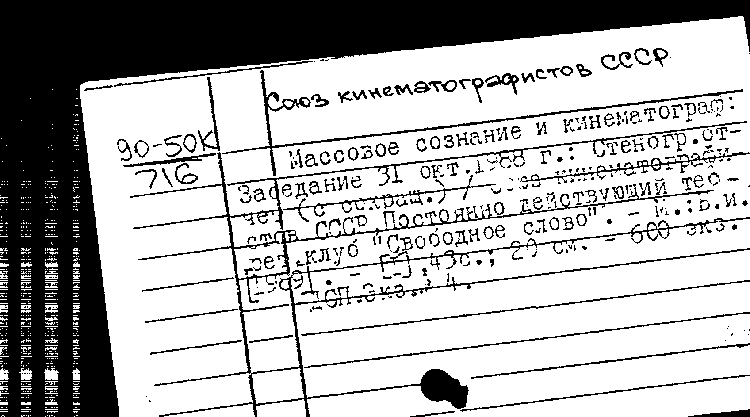 Союз кинематографистов СССР
90-50К
716
Массовое сознание и кинематограф:
Заседание 31 окт.1988 г.: Стеногр.от-
чет (с сокращ.) / Союз кинематографи-
стов СССР,Постоянно действующий тео-
рет.клуб "Свободное слово". - М.:Б.и.
[1989]. - [1],43с.; 20 см. - 600 экз.
ДСП.Экз.: 4.